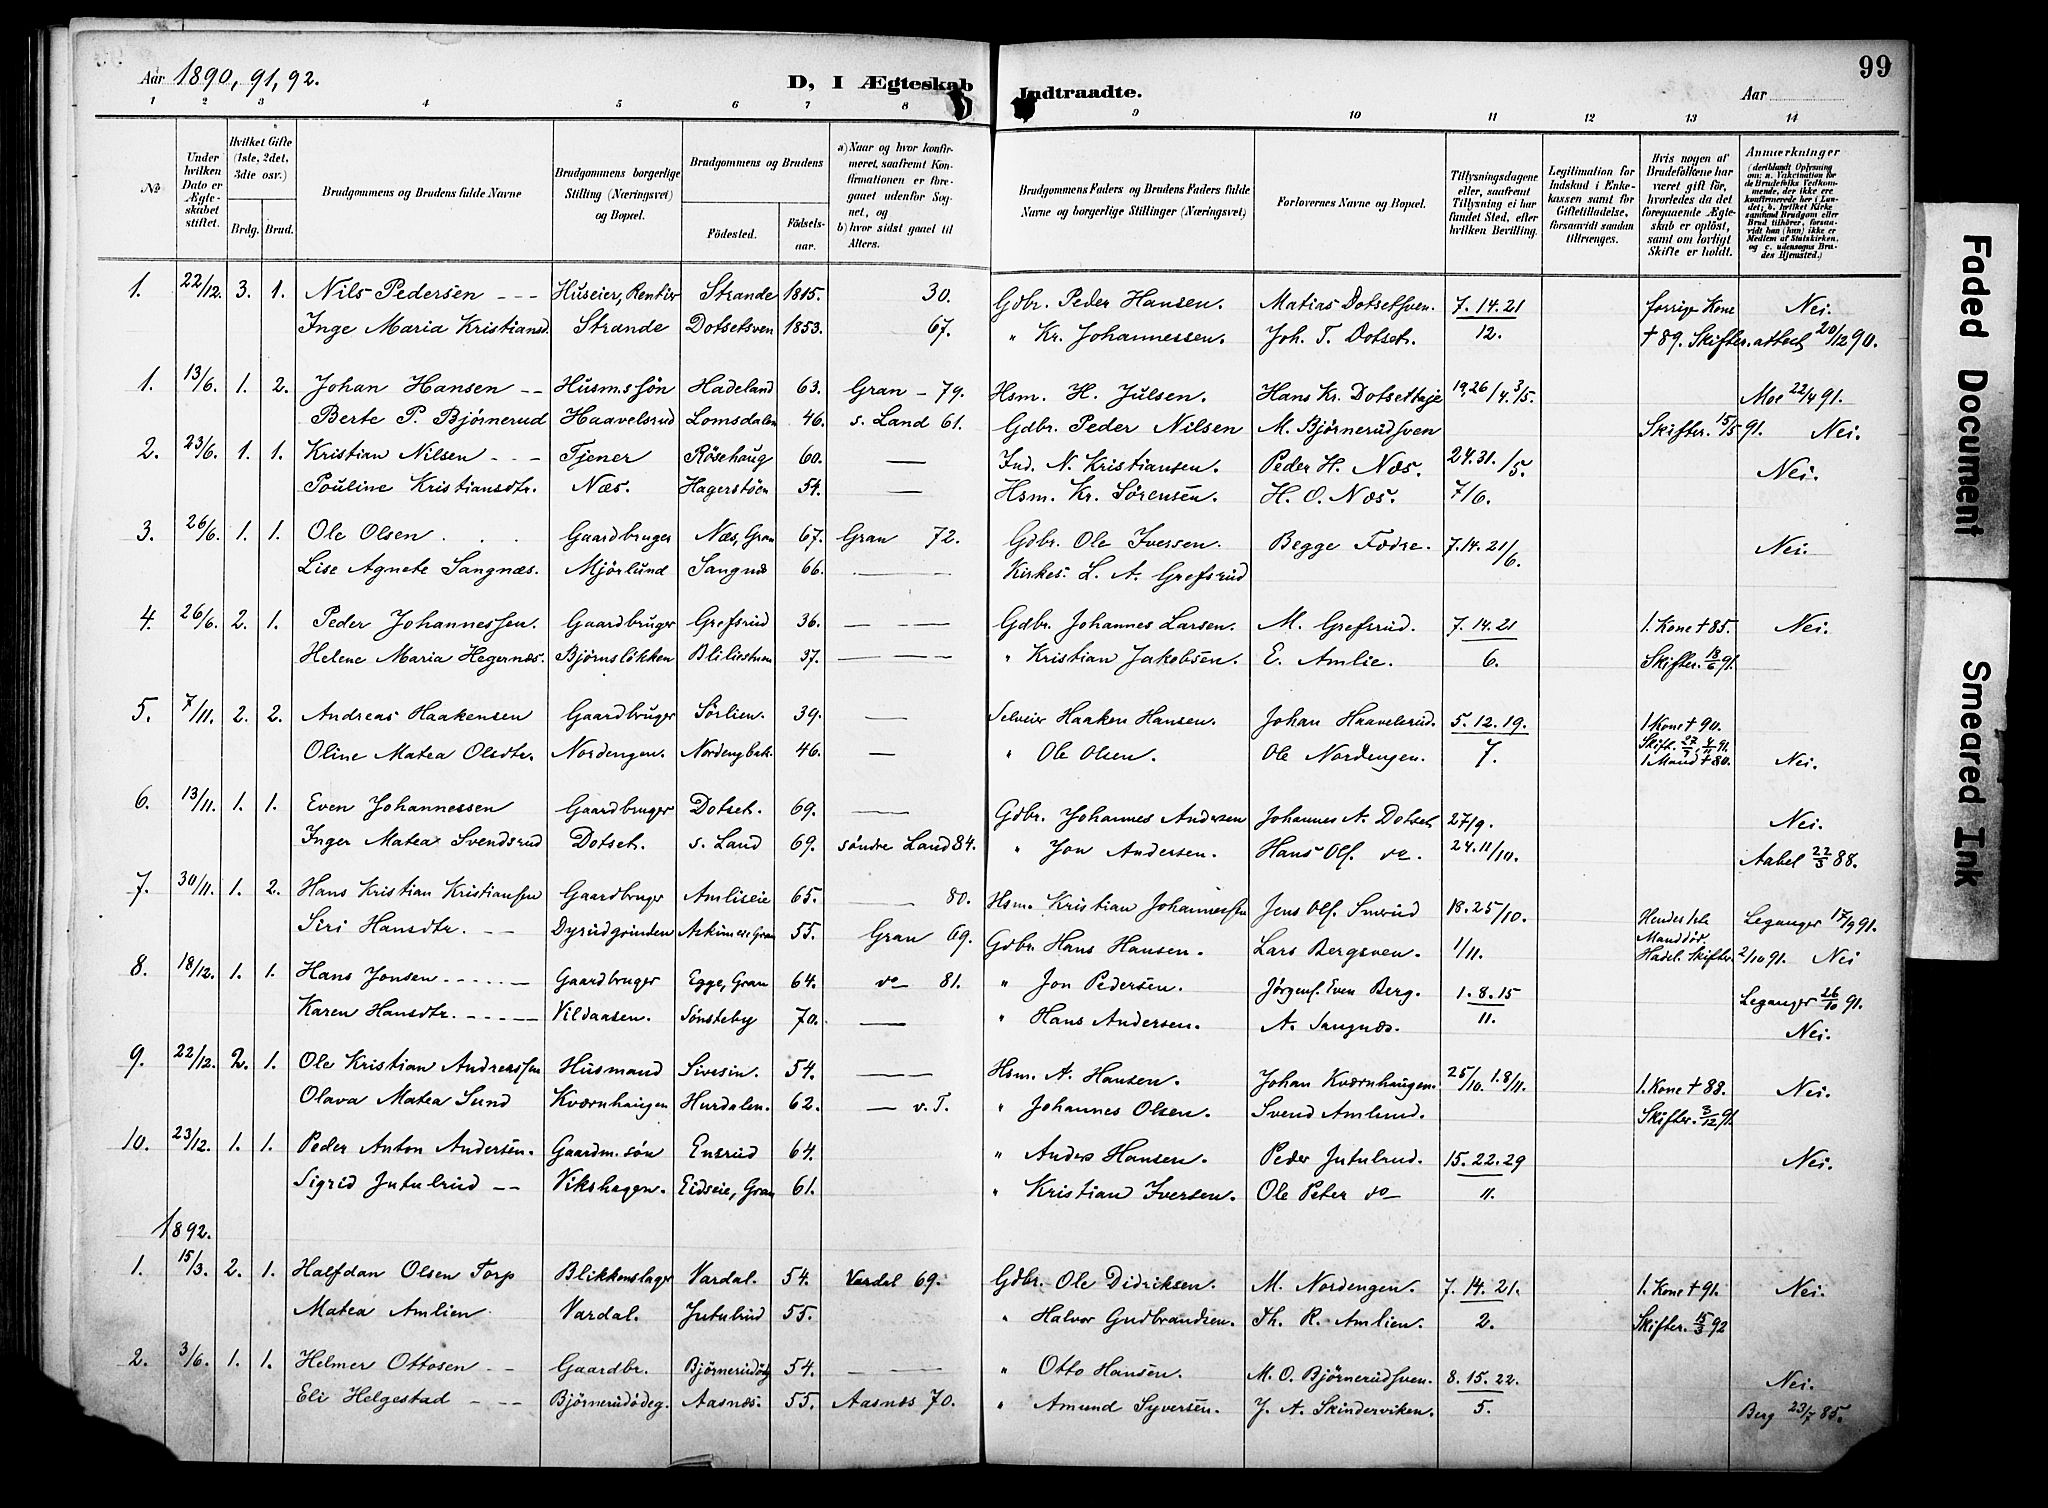 99
Aar 1890, 91, 92.
D, I Ægteskab Indtraadte.
Aar
1 2 3 4 5 6 7 8 9 10 11 12 13 14
№
Under hvilken Dato er Ægte-skabet stiftet.
Hvilket Gifte (1ste, 2det, 3die osv.)
Brdg. Brud.
Brudgommens og Brudens fulde Navne
Brudgommens borgerlige Stilling (Næringsvei) og Bopæl.
Brudgommens og Brudens
Födested. Födsels-aar.
a) Naar og hvor konfirmeret, saafremt Konfirmationen er foregaaet udenfor Sognet, og
b) hvor sidst gaaet til Alters.
Brudgommens Faders og Brudens Faders fulde Navne og borgerlige Stillinger (Næringsvei)
Forlovernes Navne og Bopæl.
Tillysningsdagene eller, saafremt Tillysning ei har fundet Sted, efter hvilken Bevilling.
Legitimation for Indskud i Enkekassen samt for Giftetilladelse, forsaavidt saadan tiltrænges.
Hvis nogen af Brudefolkene har været gift før, hvorledes da det foregaaende Ægteskab er oplöst, samt om lovligt Skifte er holdt.
Anmærkninger (deriblandt Oplysning om: a. Vakcination for de Brudefolks Vedkommende, der ikke ere konfirmerede her i Landet; b. hvilket Kirkesamfund Brudgom eller Brud tilhörer, forsaavidt han (hun) ikke er Medlem af Statskirken, og c. udensogns Brudes Hjemsted.)
1. 22/12. 3. 1. Nils Pedersen --- Huseier, Rentier Strande 1815. 30. Gdbr. Peder Hansen. Matias Dotsetsven. 7.14.21 forrige Kone Nei.
Inge Maria Kristiansd. Strande Dotsetsven 1853. 67. " Kr. Johannessen. Joh. T. Dotset. 12. † 89. Skifter. attest 20/12 90.
1. 13/6. 1. 2. Johan Hansen -- Husm.s søn Hadeland 63. Gran - 79. Hsm. H. Julsen. Hans Kr. Dotsethaje 19,26/4.3/5. Moe 22/4 91.
Berte P. Bjørnerud Haavelsrud Lomsdalen 46. s. Land 61. Gdbr. Peder Nilsen M. Bjørnerudsven Skifter. 15/5 91. Nei.
2. 23/6. 1. 1. Kristian Nilsen --- Tjener Røsehaug 60. — Ind. N. Kristiansen. Peder H. Næs. 24.31./5. Nei.
Pouline Kristiansdtr. Næs. Hagerstøen 54. — Hsm. Kr. Sørensen. H. O. Næs. 7/6.
3. 26/6. 1. 1. Ole Olsen . . Gaardbruger Næs, Gran 67. Gran 72. Gdbr. Ole Iversen. Begge Fædre. 7.14.21/6. Nei.
Lise Agnete Sangnæs. Mjørlund Sangnæs 66. — — Kirkes. L. A. Grefsrud
4. 26/6. 2. 1. Peder Johannessen. Gaardbruger Grefsrud 36. — — — Gdbr. Johannes Larsen. M. Grefsrud. 7.14.21 1. Kone † 85. Nei.
Helene Maria Hegernæs. Bjørnsløkken Bliliestuen 37. — — — " Kristian Jakobsen. E. Amlie. 6. Skifter. 18/6 91.
5. 7/11. 2. 2. Andreas Haakensen Gaardbruger Sørlien. 39. — Selveier Haaken Hansen. Johan Haavelsrud. 5.12.19. 1. Kone † 90.
Oline Matea Olsdtr. Nordengen. Nordengbak. 46. — " Ole Olsen. Ole Nordengen. 7. Skift. 27/7, 4/11 91. 1 Mand † 80. Nei.
6. 13/11. 1. 1. Even Johannessen Gaardbruger Dotset. 69. — Gdbr. Johannes Andersen Johannes A. Dotset 27/9. Nei.
Inger Matea Svendsrud Dotset. s. Land 69. søndre Land 84. " Jon Andersen. Hans Olf. do 24.11/10. Aabel 22/3 88.
7. 30/11. 1. 2. Hans Kristian Kristiansen Gaardbruger Amlieeie 65. — 80. Hsm. Kristian Johannessen Jens Olf. Smerud 18.25/10. Hendes 1ste Leganger 17/9 91.
Siri Hansdtr. -- Dyrudgrinden Askimeie Gran 55. Gran 69. Gdbr. Hans Hansen. Lars Bergsven. 1/11. Mand død. Hadel. Skifter. 2/10 91. Nei
8. 18/12. 1. 1. Hans Jonsen ------ Gaardbruger Egge, Gran 64. do 81. " Jon Pedersen. Jørgenf. Even Berg. 1.8.15 Leganger 26/10 91.
Karen Hansdtr. ----- Vildaasen. Sønsteby 70. — " Hans Andersen. A. Sangnæs. 11. Nei.
9. 22/12. 2. 1. Ole Kristian Andreassen Husmand Sivesin. 54. — — Hsm. A. Hansen. Johan Kværnhaugen. 25/10. 1.8/11. 1. Kone † 88. Nei.
Olava Matea Sund Kværnhaugen Hurdalen. 62. — v. T. " Johannes Olsen. Svend Amlund. Skifter. 3/12 91.
10. 23/12. 1. 1. Peder Anton Andersen. Gaardm. søn Ensrud 64. " Anders Hansen. Peder Jutulrud. 15.22.29 Nei.
Sigrid Jutulrud -- Vikshagen. Eidseie, Gran 61. " Kristian Iversen. Ole Peter do 11.
1892.
1. 15/3. 2. 1. Halfdan Olsen Torp Blikkenslager Vardal. 54. Vardal 69. Gdbr. Ole Didriksen. M. Nordengen. 7.14.21. 1. Kone † 91. Nei.
Matea Amlien Vardal. Jutulrud 55. " Halvor Gudbrandsen. Th. R. Amlien. 2. Skifter. 15/3 92
2. 3/6. 1. 1. Helmer Ottosen -- Gaardbr. Bjørnerudødeg 54. — " Otto Hansen. M. O. Bjørnerudsven. 8.15.22. Nei.
Eli Helgestad --- Bjørnerudødeg. Aasnæs. 55. Aasnæs 70. " Amund Syversen. J. A. Skinderviken. 5. Berg 23/7 85.
Faded Document
Smeared Ink